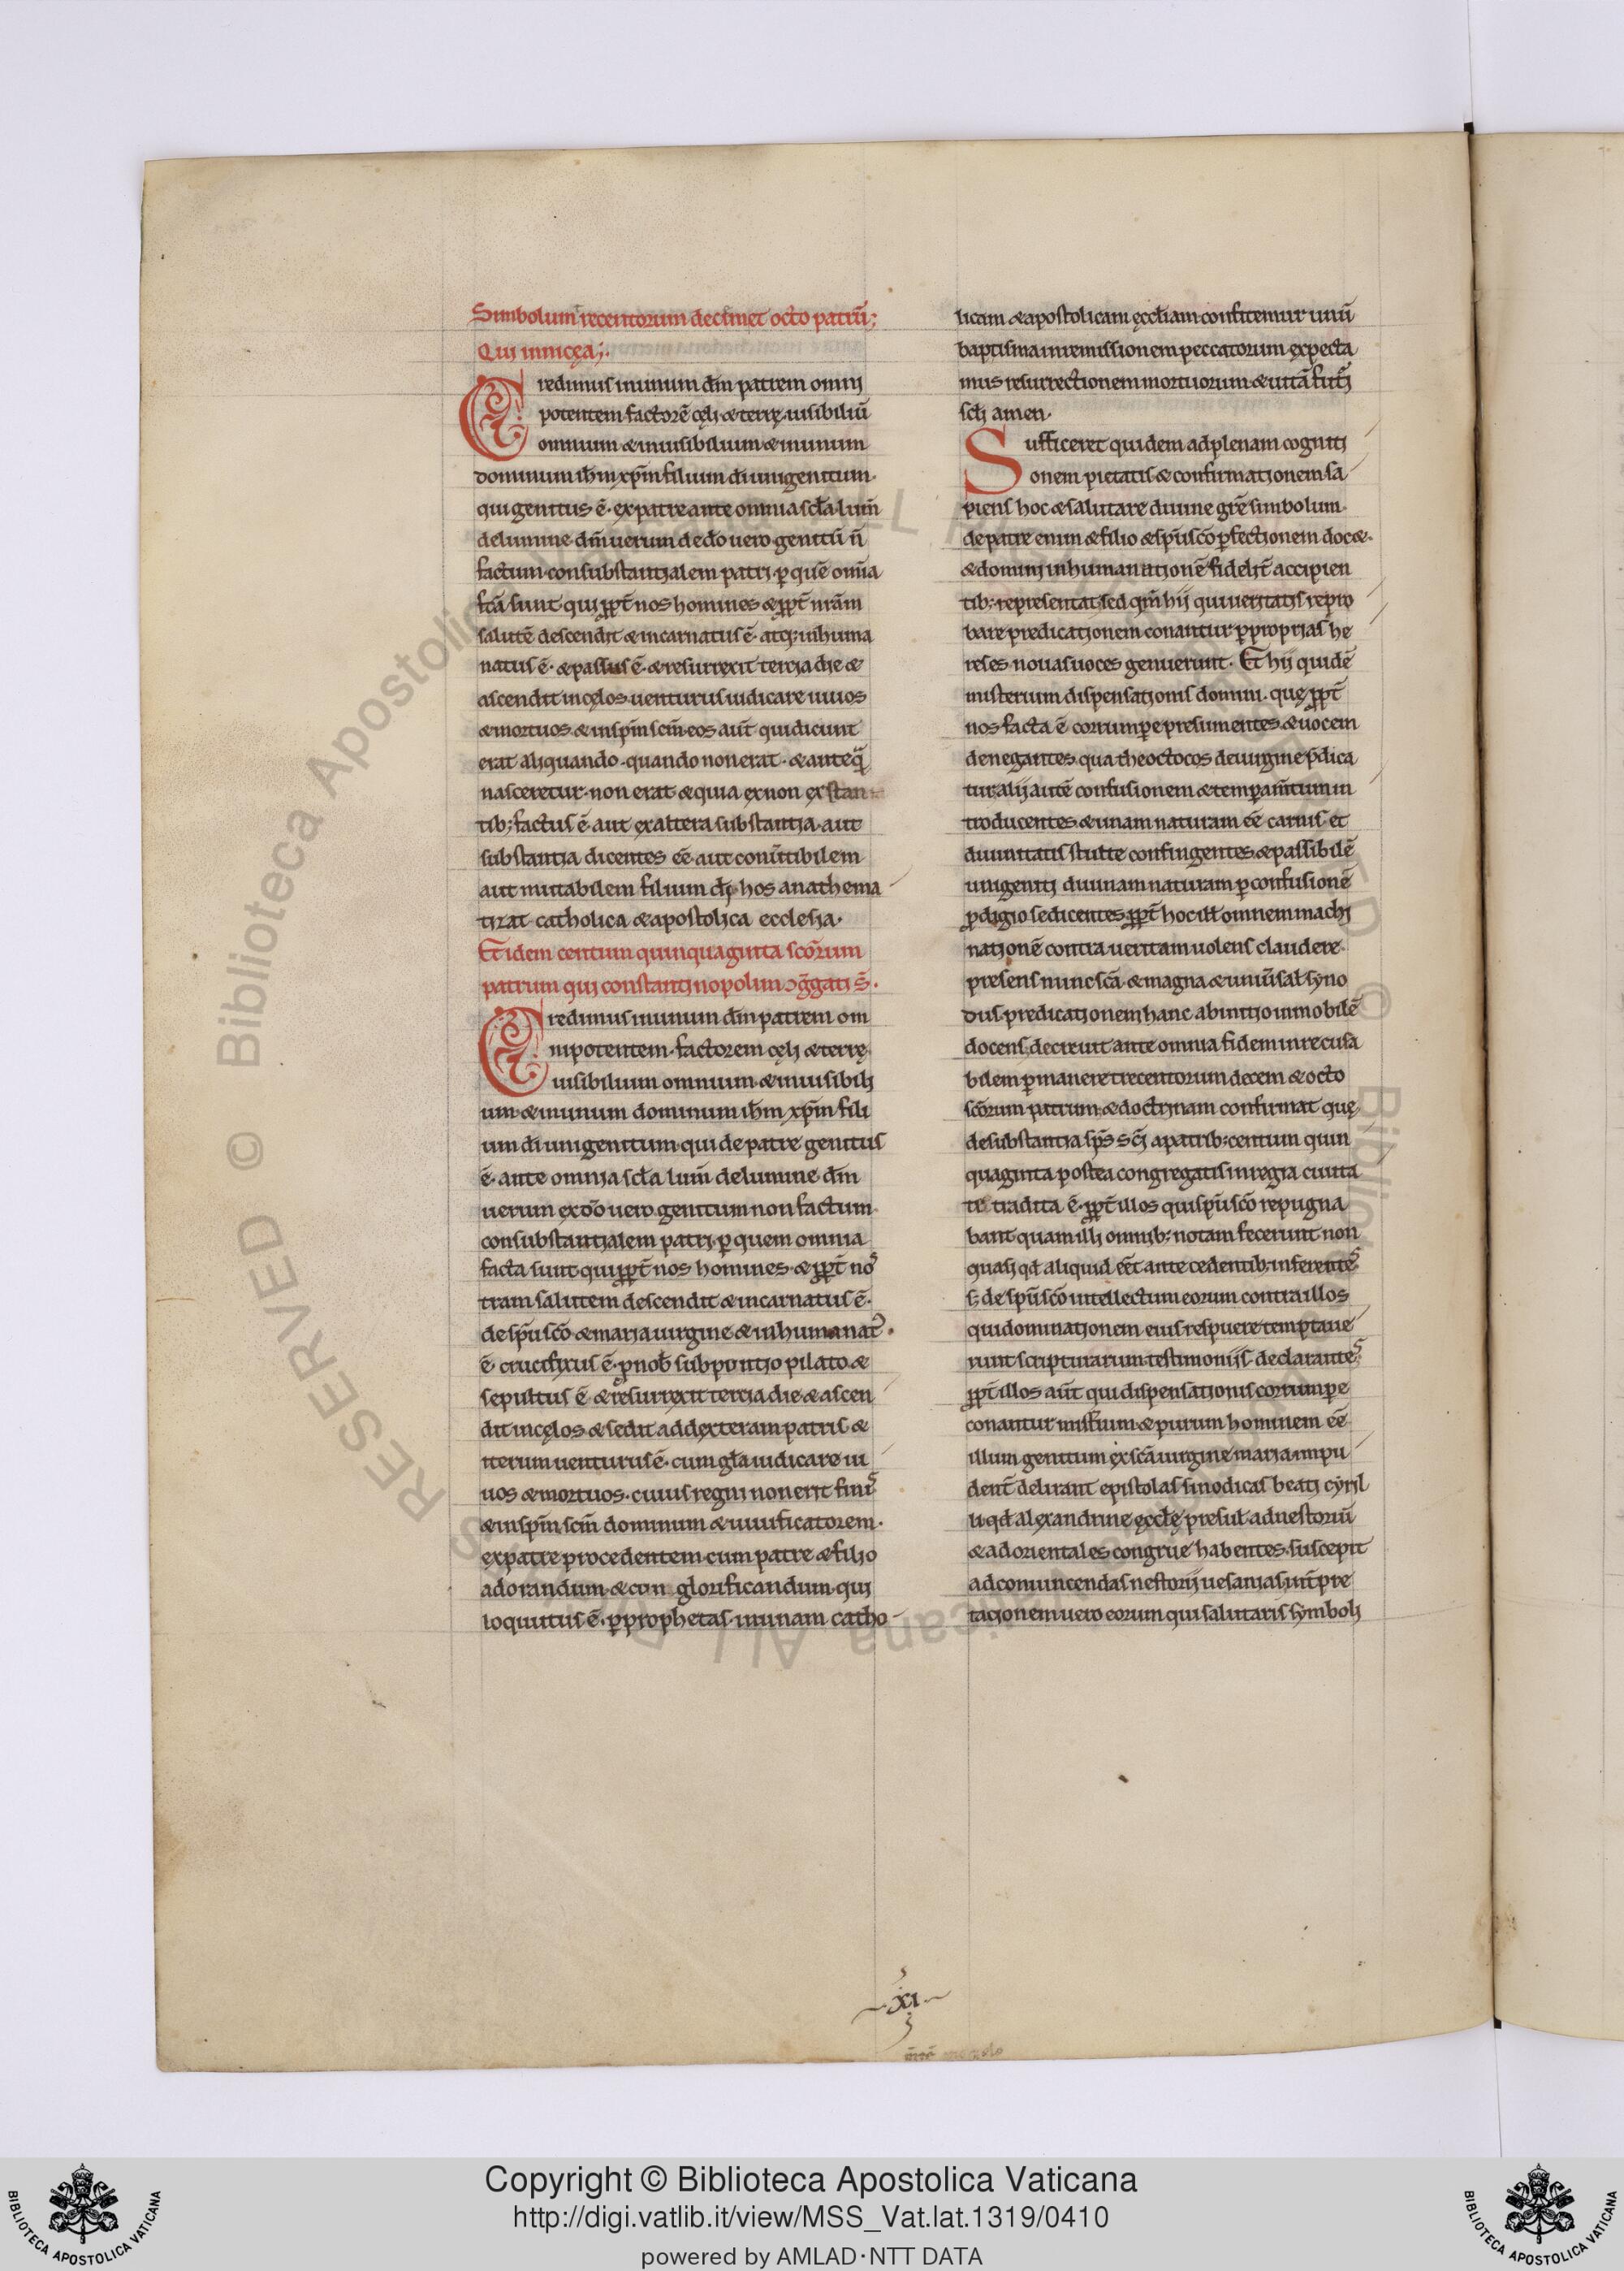 Simbolum trecentorum decimet octo patrū;
Qui innicęa;.
Credimus inunum dm̄ patrem omni
potentem factorē cęli & terrę uisibiliū
omnium & inuisibilium & inunum
dominum ih̄m xp̄m filium dī unigenitum.
qui genitus ē. expatre ante omnia sc̄la. lum̄
delumine dm̄ uerum dedō uero genitū n̄
factum. consubstantialem patri. ꝑ quē om̄ia
fc̄a sunt qui ꝓpt̄ nos homines & ꝓpt̄ nr̄am
salutē descendit & incarnatus ē. atq; inhuma
natus ē. & passus ē. & resurrexit tercia die &
ascendit incęlos. uenturus iudicare uiuos
& mortuos. & insp̄m sc̄m. eos aūt qui dicunt
erat aliquando. quando non erat. & anteq̄
nasceretur. non erat & quia ex non exstan
tib; factus ē. aut exaltera substantia. aut
substantia dicentes eē. aut conūtibilem
aut mutabilem filium dī. hos anathema
tizat catholica & apostolica ecclesia.
Et idem centum quinquaginta sc̄orum
patrum qui constantinopolim ↄḡgati s̄.
Credimus inunum dm̄ patrem om
nipotentem. factorem cęli & terrę.
uisibilium omnium. & inuisibili
um. & inunum dominum ih̄m xp̄m fili
um dī unigenitum. qui de patre genitus
ē. ante omnia sc̄la lum̄ delumine dm̄
uerum exdō uero. genitum non factum.
consubstantialem patri. ꝑ quem omnia
facta sunt. qui ꝓpt̄ nos homines. & ꝓpt̄ nos
tram salutem descendit. & incarnatus ē.
de sp̄u sc̄o & maria uirgine & inhumanat᷒.
ē. crucifixus ē. ꝓ nob̄ sub pontio pilato. &
sepultus ē. & resurrexit tercia die & ascen
dit incęlos & sedit addexteram patris &
iterum uenturus ē. cum gl̄a iudicare ui
uos & mortuos. cuius regni non erit finis
& insp̄m sc̄m dominum & uiuificatorem.
expatre procedentem. cum patre & filio
adorandum. & con glorificandum. qui
loquutus ē. ꝑ prophetas. inunam catho
licam & apostolicam ęccl̄iam. confitemur unū
baptisma inremissionem peccatorum. expecta
mus resurrectionem mortuorum. & uitā futuri
sc̄li amen.
Sufficeret quidem adplenam cogniti
onem pietatis. & confirmationem. sa
piens hoc & salutare diuine gr̄e simbolum.
de patre enim & filio & sp̄u sc̄o ꝑfectionem doc&.
& domini inhumanationē fidelit̄ accipien
tib; representat. sed qm̄ hii qui ueritatis repro
bare predicationem conantur. ꝑ proprias he
reses. nouas uoces genuerunt. Et hii quidē
misterium dispensationis domini. quę ꝓpt̄
nos facta ē corrumpere presumentes. & uocem
denegantes. qua theoctocos de uirgine p̄dica
tur. alii autē confusionem & temꝑam̄tum in
troducentes. & unam naturam eē carnis. et
diuinitatis stulte confingentes. & passibilē
unigeniti diuinam naturam ꝑ confusionē
ꝓdigiose dicentes. ꝓpt̄ hoc ill̄ omnem machi
nationē contra ueritam uolens claudere.
presens nunc sc̄a. & magna & uniūsal̄ syno
dus. predicationem hanc abinitio inmobilē
docens. decreuit ante omnia fidem inrecusa
bilem ꝑmanere trecentorum decem & octo
sc̄orum patrum. & doctrinam confirmat. quę.
de substantia sp̄s sc̄i apatrib; centum quin
quaginta postea congregatis inregia ciuita
te tradita ē. ꝓpt̄ illos qui sp̄ui sc̄o repugna
bant. quam illi omnib; notam fecerunt. non
quasi qd̄ aliquid eēt antecedentib; inferentes
s; de sp̄u sc̄o intellectum eorum. contra illos
qui dominationem eius respuere temptaue
runt. scripturarum testimoniis declarantes.
ꝓpt̄ illos aūt qui dispensationis corrumpere
conantur mist̄ium. & purum hominem eē
illum genitum ex sc̄a uirgine maria. impu
dent̄ delirant epistolas sinodicas beati cyril
li qd̄ alexandrine ęccl̄ę presul̄. ad nestoriū
& ad orientales congrue habentes. suscepit
ad conuincendas nestorii uesanias. int̄pre
tationem uero eorum qui salutaris symboli
.xi.
Copyright © Biblioteca Apostolica Vaticana
http://digi.vatlib.it/view/MSS_Vat.lat.1319/0410
powered by AMLAD·NTT DATA
BIBLIOTECA APOSTOLICA VATICANA
BIBLIOTECA APOSTOLICA VATICANA